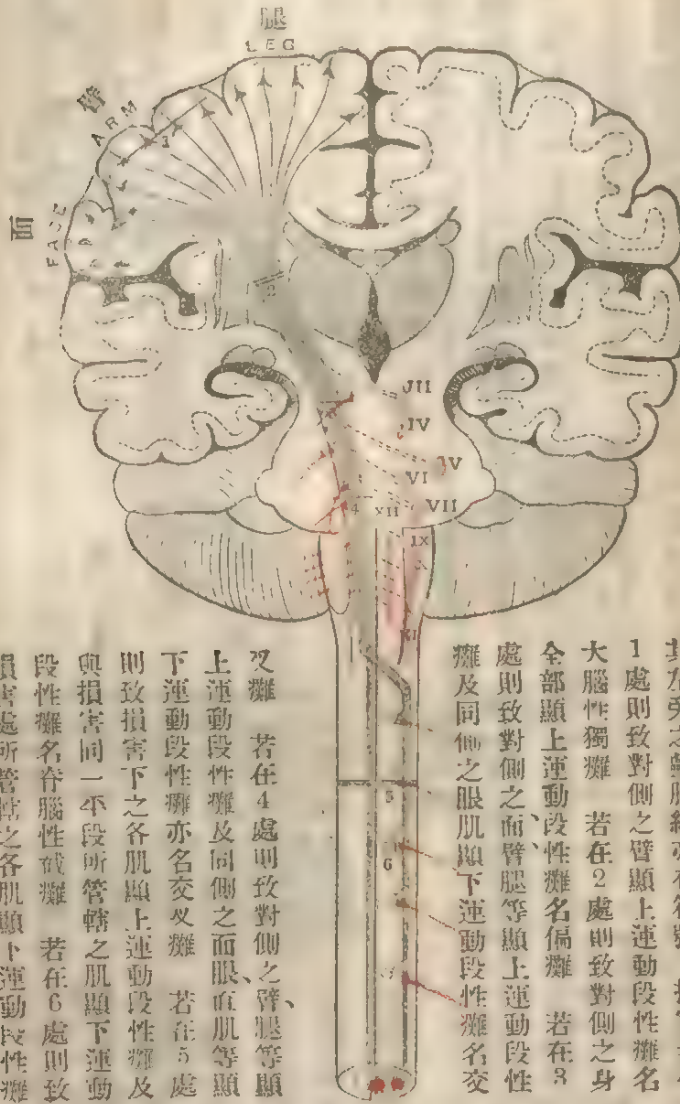 腿
LEG
臂
ARM
面
FACE
1
2
III
IV
V
VI
VII
3
4
XII
IX
XI
5
6
其左旁之
1處則致對側之臂顯上運動段性癱名
大腦性獨癱 若在2處則致對側之身
全部顯上運動段性癱名偏癱 若在3
處則致對側之面、臂、腿等顯上運動段性
癱及同側之眼肌顯下運動段性癱名交
叉癱 若在4處則致對側之臂、腿等顯
上運動段性癱及同側之面、眼直肌等顯
下運動段性癱亦名交叉癱 若在5處
則致損害下之各肌顯上運動段性癱及
與損害同一平段所管轄之肌顯下運動
段性癱名脊腦性截癱 若在6處則致
損害處所管轄之各肌顯下運動段性癱